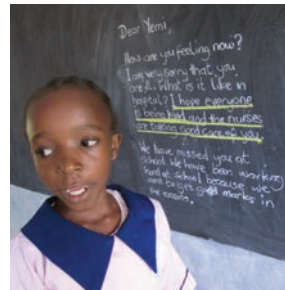 Dear Yemi,
How are you feeling now?
I am very sorry that you
are ill. What is it like in
hospital? I hope everyone
is being kind and the nurses
are taking good care of you.
We have missed you at
school. We have been working
hard at school because we
want to get good marks in
the exams.